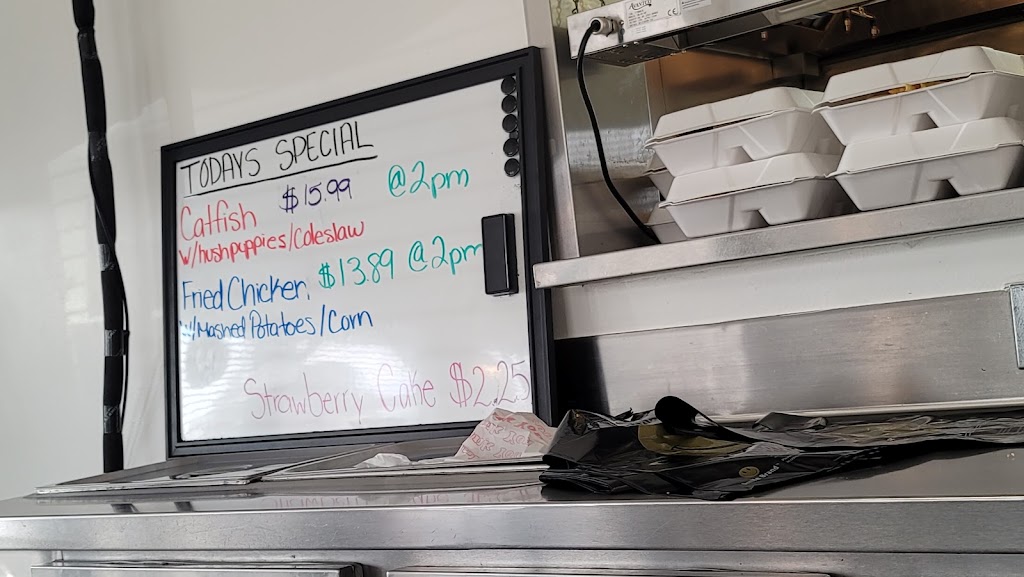 TODAYS SPECIAL
Catfish $15.99 @2pm
w/hushpuppies/Coleslaw
Fried Chicken $13.89 @2pm
w/Mashed Potatoes/Corn
Strawberry Cake $2.25